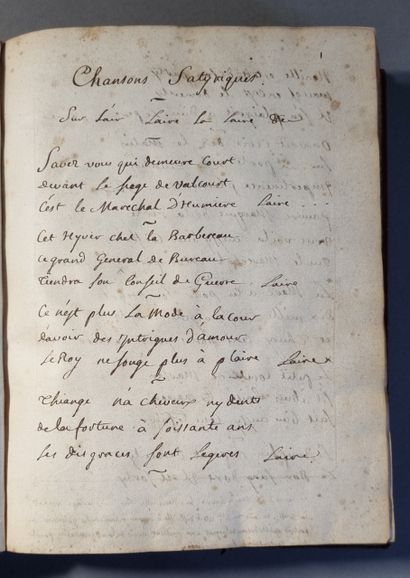 1
Chansons Satyriques
Sur l'air Laire la Laire &c
Savez vous qui demeure Court
devant le siege de Valcourt
C'est le Marechal D'Humiere Laire ...
Cet Hyver chez la Barbereau
ce grand General de Bureau
tiendra son Conseil de Guerre Laire
Ce n'est plus La Mode à la cour
davoir des Intrigues d'amour
Le Roy ne songe plus à plaire Laire
Thiange n'a cheveux ny dents
de la fortune à soissante ans
Les disgraces sont legeres Laire